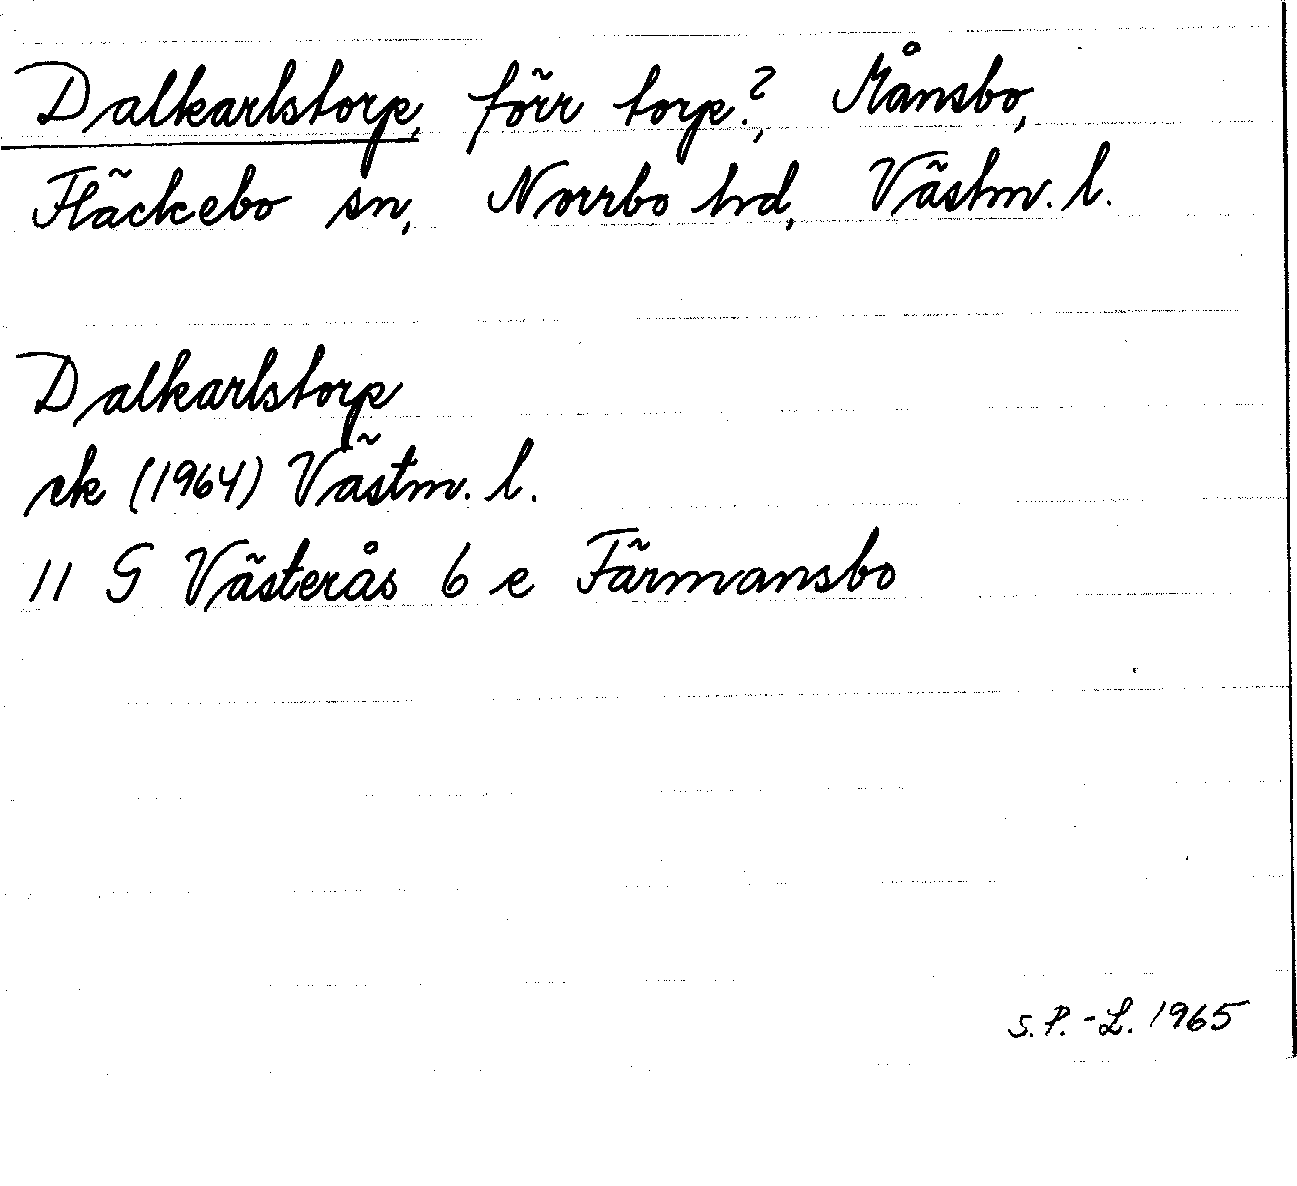 Dalkarlstorp, förr torp?, Månsbo,
Fläckebo sn, Norrbo hd, Västm. l.
Dalkarlstorp
ek (1964) Västm. l.
11 G Västerås 6 e Färmansbo
S.P.-L. 1965